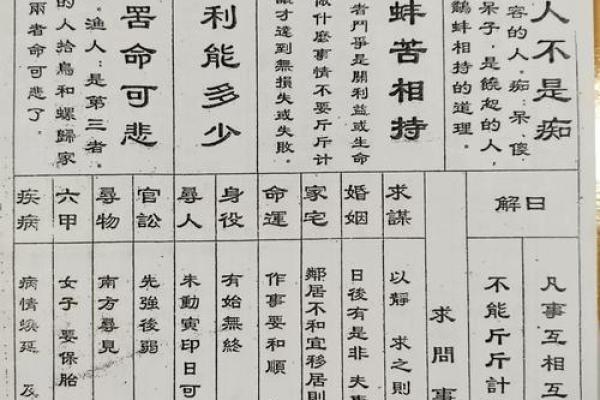 人不是痴
容的人。痴:呆、傻
呆子,是饒恕的人,
鷸蚌相持的道理。
蚌苦相持
者鬥爭是關利益或生命
做什麼事情不要斤斤計
才達到無損失或失敗。
利能多少
罟命可悲
。漁人:是第三者。
的人拾鳥和螺歸家
兩者命可悲了。
解日
凡事互相互
不能斤斤計
求問事
求謀
以靜 求之則
婚姻
日後有是非 夫事
家宅
鄰居不和宜移居則
命運
作事要和順
身役
有始無終
尋人
未動寅印日可
官訟
先強後弱
尋物
南方尋見
六甲
女子 要保胎
疾病
病情煥延 及